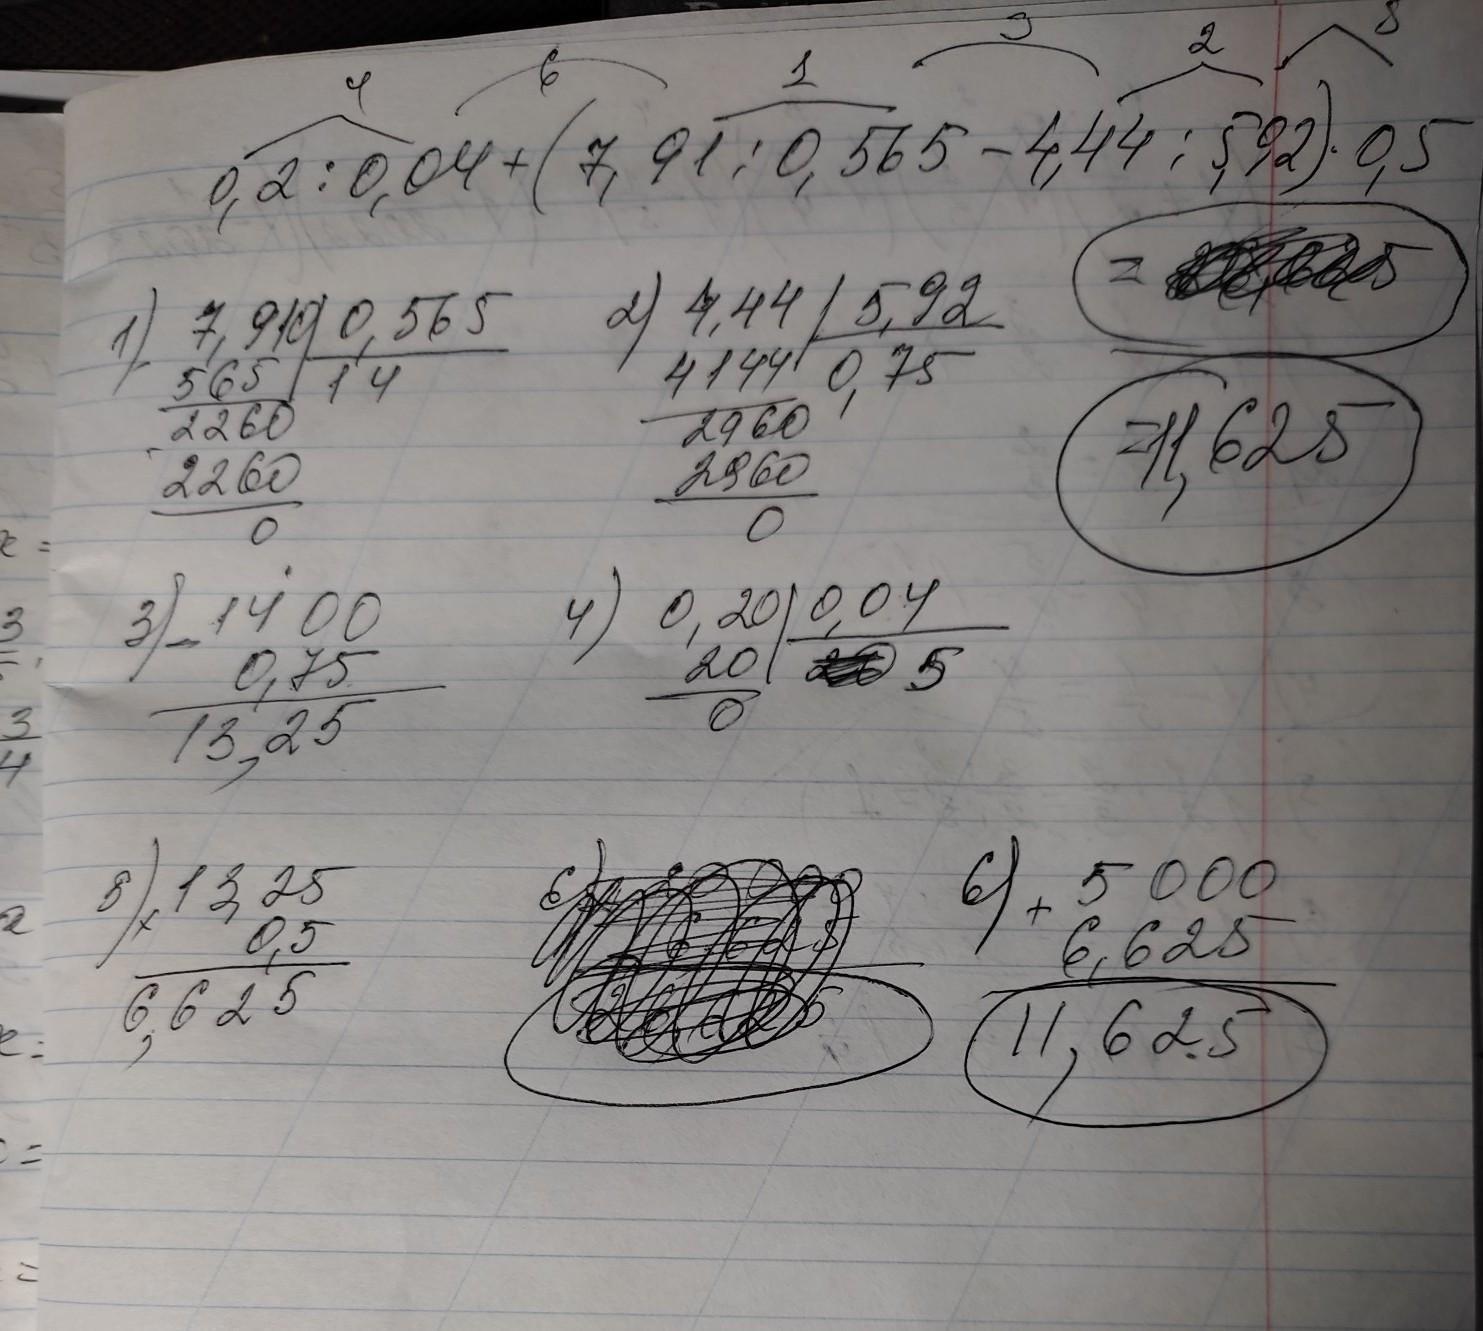 4 6 1 3 2 5
0,2 : 0,04 + ( 7,91 : 0,565 - 4,44 : 5,92 ) · 0,5
=
= 11,625
1) 7,910 | 0,565
565 | 14
2260
2260
0
2) 4,44 | 5,92
4144 | 0,75
2960
2960
0
3) - 1400
0,75
13,25
4) 0,20 | 0,04
20 | 5
0
5) x 13,25
0,5
6,625
6)
6) + 5000
6,625
11,625
x =
3
3
4
=
=